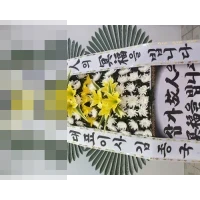 人의 冥福을 빕니다
대표이사 김종국
삼가 故人의
冥福을 빕니